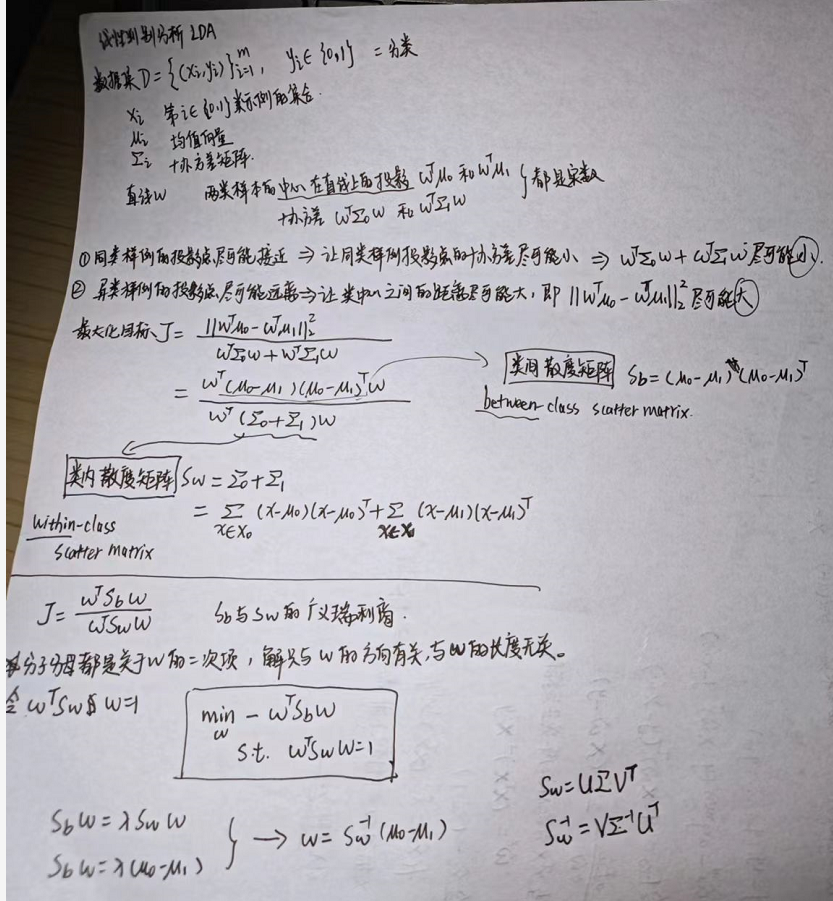 线性判别分析 LDA
数据集 D = {(xi, yi)}_{i=1}^m, yi ∈ {0,1} 二分类
Xi 第 i∈{0,1} 类示例的集合.
μi 均值向量
Σi 协方差矩阵.
直线 w 两类样本的中心在直线上的投影 w^Tμ0 和 w^Tμ1 } 都是实数
协方差 w^TΣ0w 和 w^TΣ1w
① 同类样例的投影点尽可能接近 ⇒ 让同类样例投影点的协方差尽可能小 ⇒ w^TΣ0w + w^TΣ1w 尽可能小.
② 异类样例的投影点尽可能远离 ⇒ 让类中心之间的距离尽可能大, 即 ||w^Tμ0 - w^Tμ1||_2^2 尽可能大
最大化目标 J = ||w^Tμ0 - w^Tμ1||_2^2 / (w^TΣ0w + w^TΣ1w)
= w^T(μ0-μ1)(μ0-μ1)^Tw / w^T(Σ0+Σ1)w
类间散度矩阵 Sb = (μ0-μ1)(μ0-μ1)^T
between-class scatter matrix.
类内散度矩阵 Sw = Σ0+Σ1
= Σ_{x∈X0} (x-μ0)(x-μ0)^T + Σ_{x∈X1} (x-μ1)(x-μ1)^T
within-class
scatter matrix
J = w^TSbw / w^TSww Sb与Sw的广义瑞利商.
分子分母都是关于w的二次项, 解只与w的方向有关, 与w的长度无关。
令 w^TSw w=1
min_w - w^TSbw
s.t. w^TSww=1
Sbw = λSww
Sbw = λ(μ0-μ1)
} → w = Sw^{-1}(μ0-μ1)
Sw = UΣV^T
Sw^{-1} = VΣ^{-1}U^T